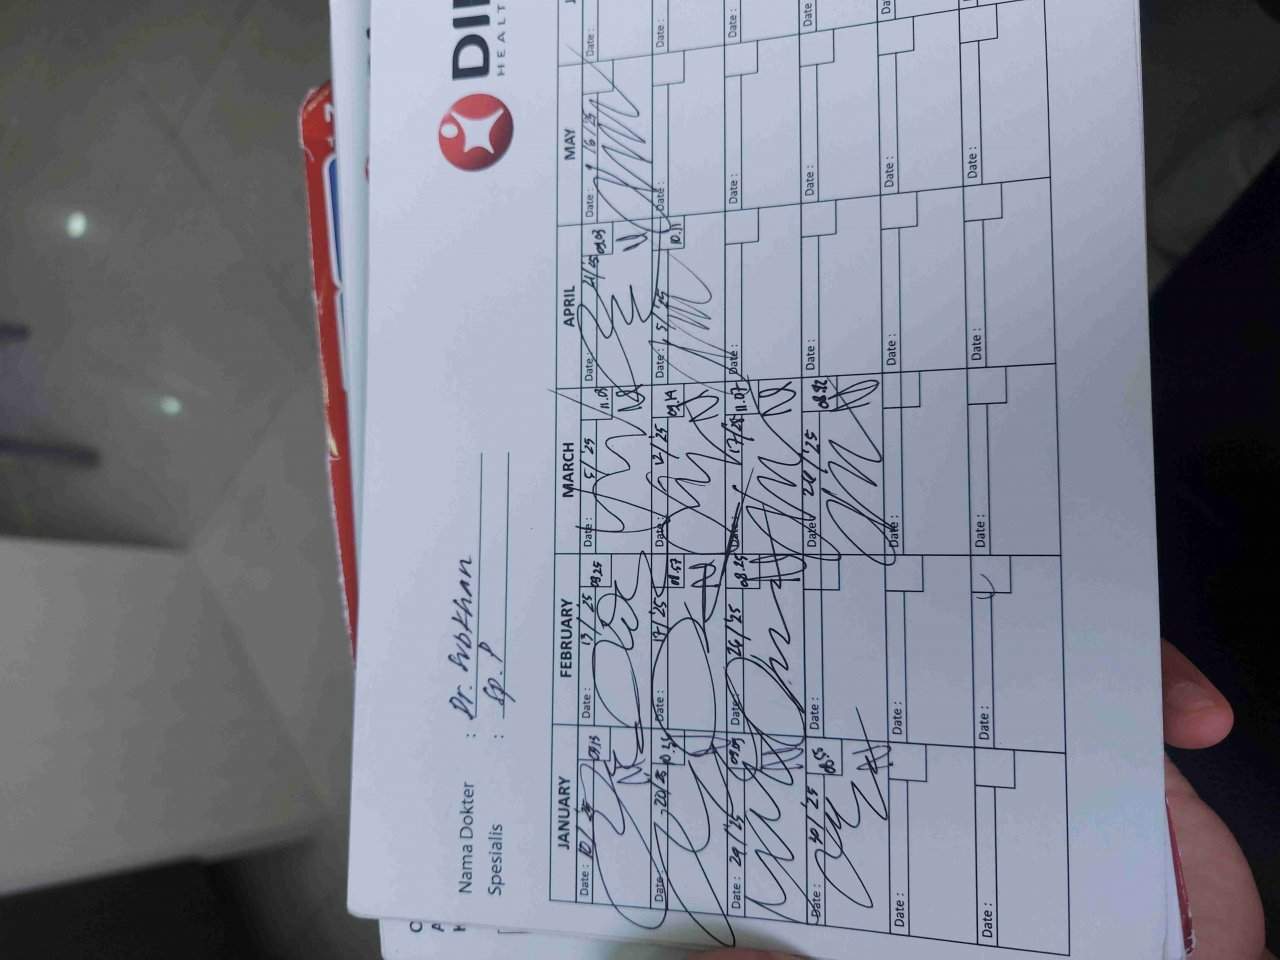 DI
HEALT
Nama Dokter : Dr. Subkhan
Spesialis : Sp. P
JANUARY FEBRUARY MARCH APRIL MAY
Date : 10/'25 09.13 Date : 13/'25 09.25 Date : 5/'25 11.01 Date : 21/'25 09.03 Date : 16/25 Date :
Date : 20/'25 Date : 17/'25 08.57 Date : 12/'25 09.14 Date : 5/'25 10.11 Date : Date :
Date : 29/'25 09.09 Date : 26/'25 08.25 Date : 17/'25 11.07 Date : Date : Date :
Date : 30/'25 Date : Date : 26/'25 08.32 Date : Date : Date :
Date : Date : Date : Date : Date : Da
Date : Date : Date : Date : Date :